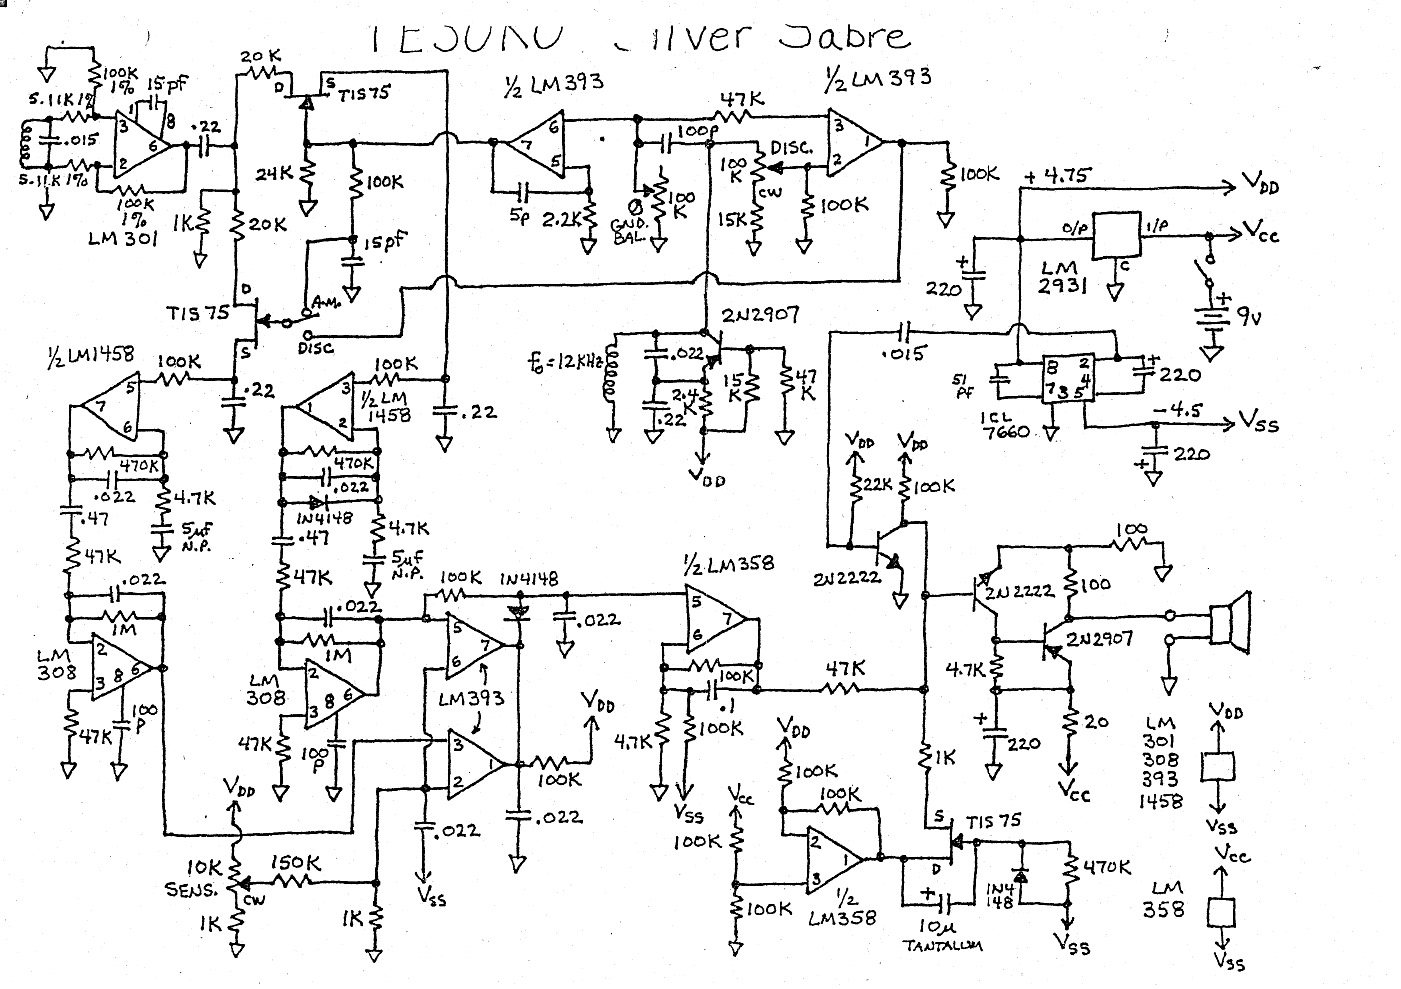 TESORO Silver Sabre
20K
D S
TIS75
½ LM393
½ LM393
100K
1%
15pf
5.11K 1%
.015
3
1
8
6
2
.22
5.11K 1%
100K
1%
LM 301
1K
20K
24K
100K
15pf
7
6
5
5p
2.2K
47K
100p
DISC.
100
K
CW
15K
100
K
Ø
GND.
BAL.
3
2
1
100K
100K
+ 4.75
VDD
O/P
I/P
VCC
C
LM
2931
+
220
+
9v
TIS75
D
S
A.M.
DISC
2N2907
fo=12KHz
.022
2.4
K
.22
15
K
47
K
VDD
.015
51
pf
8 2
4
7 3 5
+
220
ICL
7660
-4.5
VSS
220
+
½ LM1458
100K
5
7
6
.22
100K
3
1
2
½ LM
1458
.22
470K
.022
.47
4.7K
5µf
N.P.
47K
470K
.022
1N4148
.47
4.7K
5µf
N.P.
47K
.022
1M
LM
308
2
3
8
6
47K
100
P
.022
1M
LM
308
2
3
8
6
47K
100
P
100K
1N4148
5
6
7
LM393
3
2
1
.022
VDD
100K
.022
.022
VSS
VDD
10K
SENS.
CW
150K
1K
1K
½ LM358
5
6
7
100K
.1
4.7K
100K
VSS
47K
VDD
22K
VDD
100K
2N2222
2N2222
100
100
2N2907
4.7K
+
220
20
VCC
1K
VDD
100K
100K
VCC
100K
100K
2
3
1
½
LM358
S
D
TIS75
+
10µ
TANTALUM
1N4
148
470K
VSS
LM
301
308
393
1458
VDD
VSS
LM
358
VCC
VSS